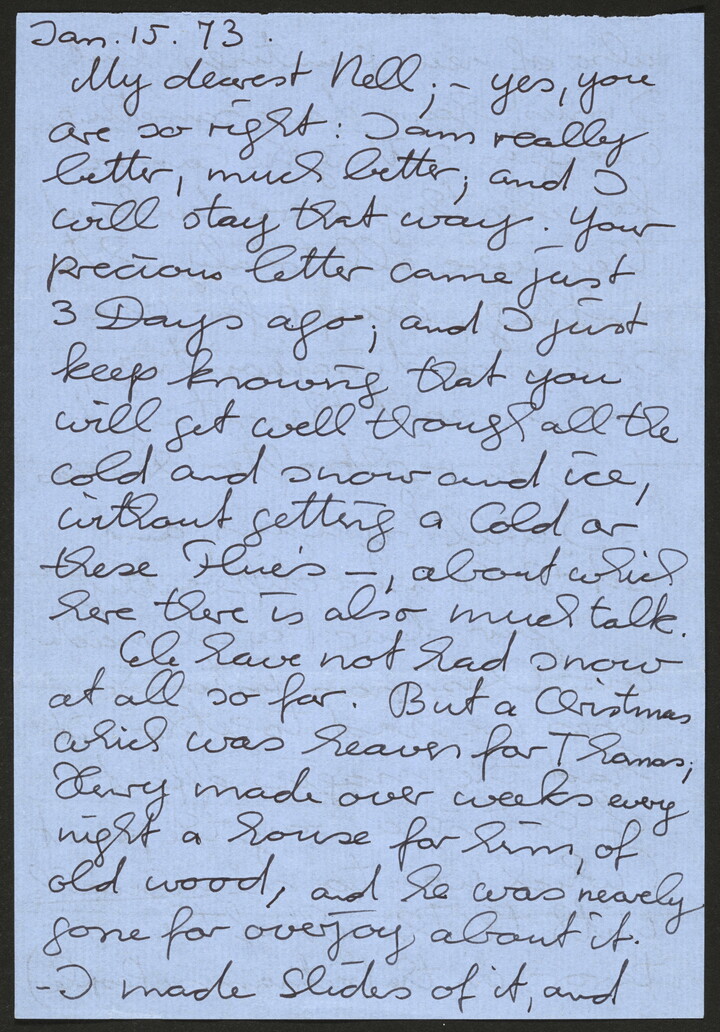 Jan. 15. 73.
My dearest Nell; - yes, you
are so right: I am really
better, much better; and I
will stay that way. Your
precious letter came just
3 Days ago; and I just
keep knowing that you
will get well through all the
cold and snow and ice,
without getting a Cold or
these Flue's -, about which
here there is also much talk.
We have not had snow
at all so far. But a Christmas
which was heaven for Thomas;
Henry made over weeks every
night a house for him, of
old wood, and he was nearly
gone for overjoy about it.
- I made slides of it, and